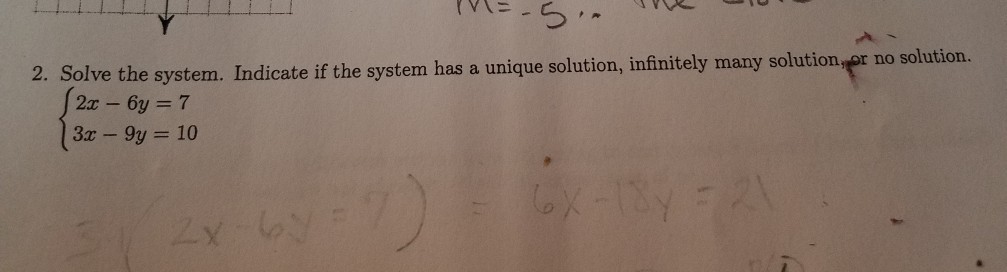 m = -5
2. Solve the system. Indicate if the system has a unique solution, infinitely many solution, or no solution.
2x − 6y = 7
3x − 9y = 10
3(2x-6y=7) = 6x-18y=21